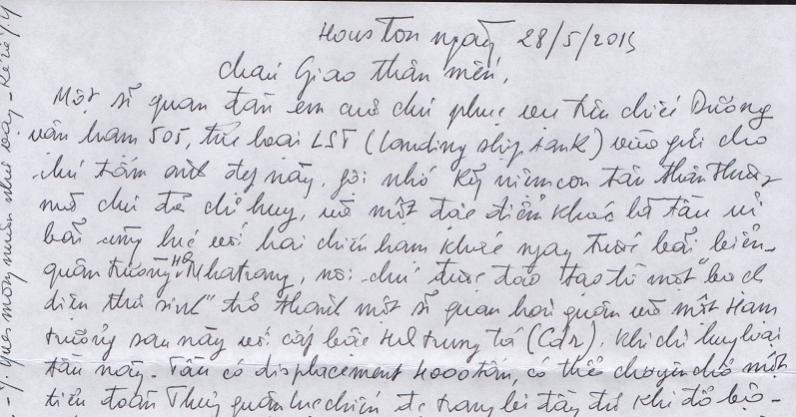 Houston ngày 28/5/2015
cháu Giao thân mến,
Một sĩ quan đàn em cũ chú phục vụ trên chiếc Dương
vận hạm 505, thuộc loại LST (Landing ship tank) vừa gửi cho
chú tấm ảnh đẹp này, gợi nhớ kỷ niệm con tàu thân thương
mà chú đã chỉ huy, và một đặc điểm khác là tàu ủi
bãi cùng lúc với hai chiến hạm khác ngay trước bãi biển
quân trường HQ Nhatrang, nơi chú được đào tạo từ một "bạch
diện thư sinh" trở thành một sĩ quan hải quân và một Hạm
trưởng sau này với cấp bậc HQ trung tá (Cdr), khi chỉ huy loại
tàu này. Tàu có displacement 4000 tấn, có thể chuyên chở một
tiểu đoàn Thuỷ quân lục chiến để trang bị đầy đủ khi đổ bộ -